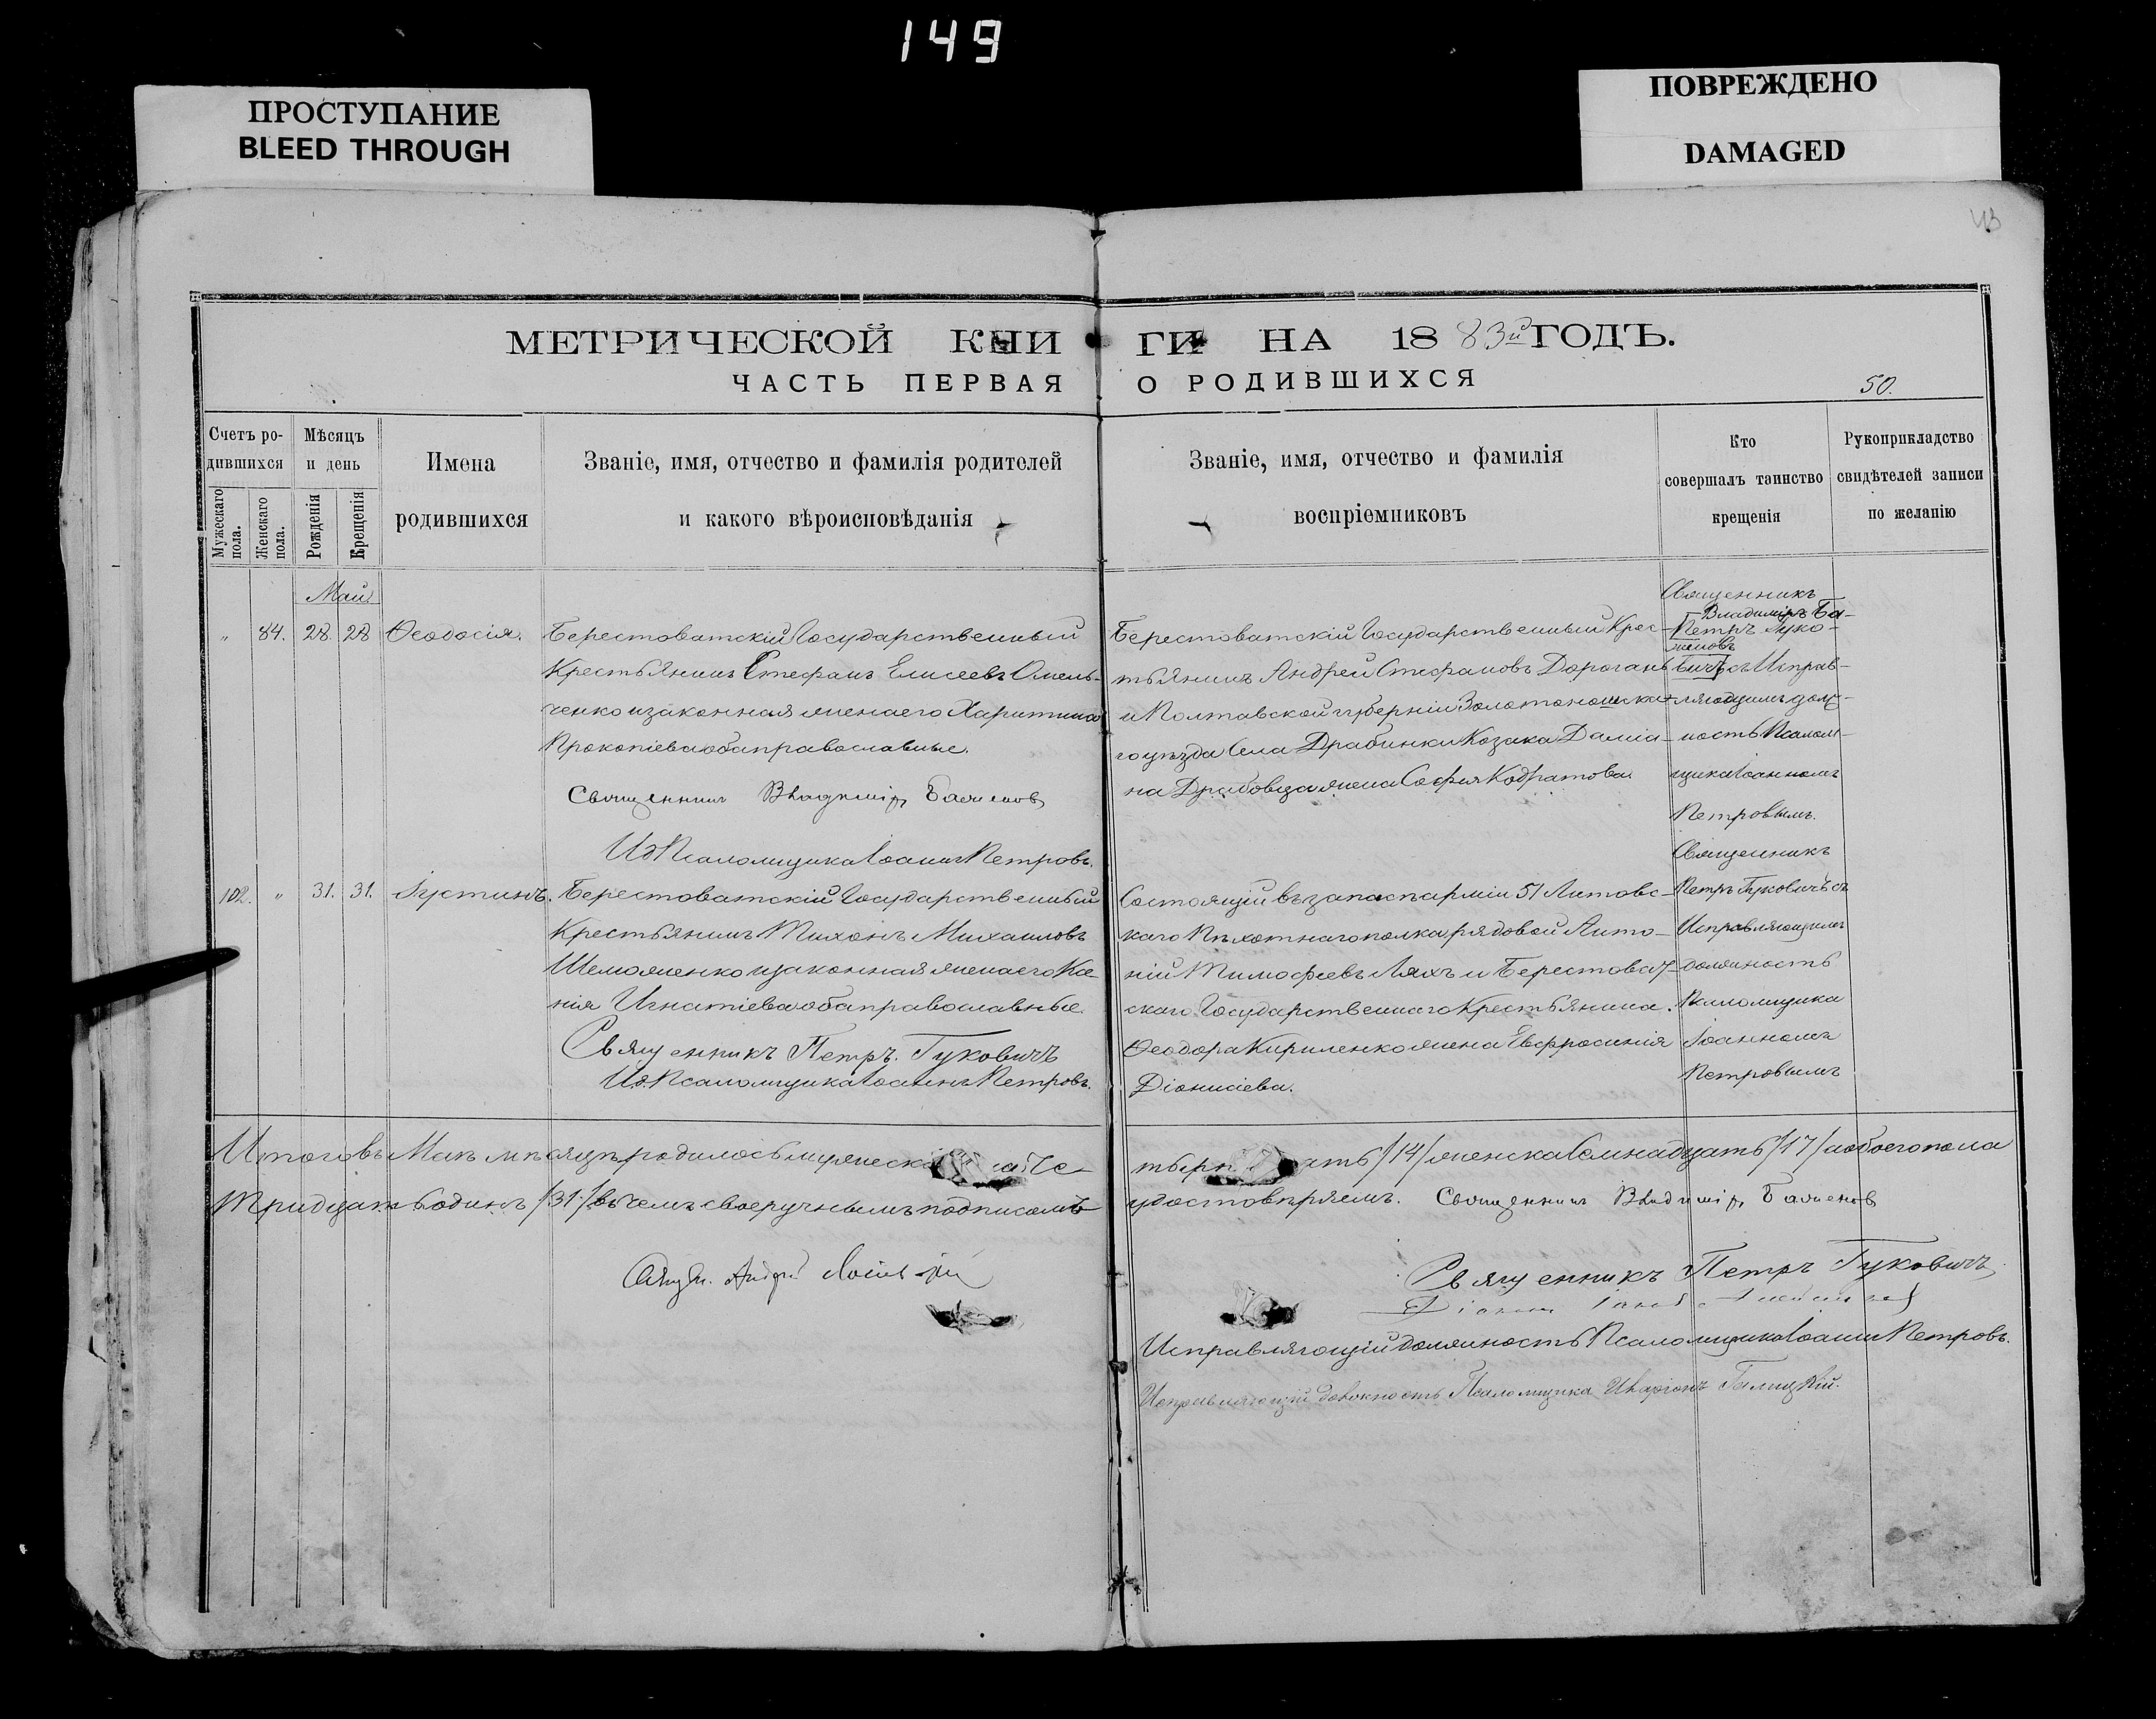 149
ПРОСТУПАНИЕ
BLEED THROUGH
ПОВРЕЖДЕНО
DAMAGED
43
МЕТРИЧЕСКОЙ КНИГИ НА 1883й ГОДЪ.
ЧАСТЬ ПЕРВАЯ О РОДИВШИХСЯ
50.
Счетъ ро-
дившихся
Мужескаго пола.
Женскаго пола.
Мѣсяцъ
и день
Рожденія
Крещенія
Имена
родившихся
Званіе, имя, отчество и фамилія родителей
и какого вѣроисповѣданія
Званіе, имя, отчество и фамилія
воспріемниковъ
Кто
совершалъ таинство
крещенія
Рукоприкладство
свидѣтелей записи
по желанію
Май
„ 84. 28. 28 Ѳеодосія.
Берестоватскій Государственный
Крестьянинъ Стефанъ Елисеевъ Омель-
ченко и законная жена его Харитина
Прокопіева оба православные.
Священникъ Владиміръ Баженовъ
И.д. Псаломщика Іоаннъ Петровъ.
Берестоватскій Государственный Крес-
тьянинъ Андрей Стефановъ Дорогань
и Полтавской губерніи Золотоношска-
го уѣзда Села Драбинки Козака Даміа-
на жена Софія Кодратова
Священникъ
Владиміръ Ба-
Петръ Гуко-
женовъ
вичъ съ Исправ-
ляющимъ долж-
ность Псалом-
щика Іоанномъ
Петровымъ.
102. „ 31. 31. Іустинъ.
Берестоватскій Государственный
Крестьянинъ Тихонъ Михаиловъ
Шеможенко и законная жена его Ксе
нія Игнатіева оба православные.
Священникъ Петръ Гуковичъ
И.д. Псаломщика Іоаннъ Петровъ.
Состоящій въ запасѣ арміи 51 Литовс-
каго Пѣхотнаго полка рядовой Анто-
ній Тимофеевъ Ляхъ и Берестоват-
скаго Государственнаго Крестьянина
Ѳеодора Кириленко жена Евфросинія
Діонисіева.
Священникъ
Петръ Гуковичъ съ
Исправляющимъ
должность
Псаломщика
Іоанномъ
Петровымъ
Итого въ Маѣ мѣсяцѣ родилось мужеска Че-
тырн ать /14/ женска Семнадцать /17/ а обоего пола
Тридцать одинъ /31/ въ чемъ своеручнымъ подписомъ
удостовѣряемъ. Священникъ Владиміръ Баженовъ
Андрей
Священникъ Петръ Гуковичъ
Исправляющій должность Псаломщика Іоаннъ Петровъ.
Исправляющій должность Псаломщика Иларіонъ Галицкій.